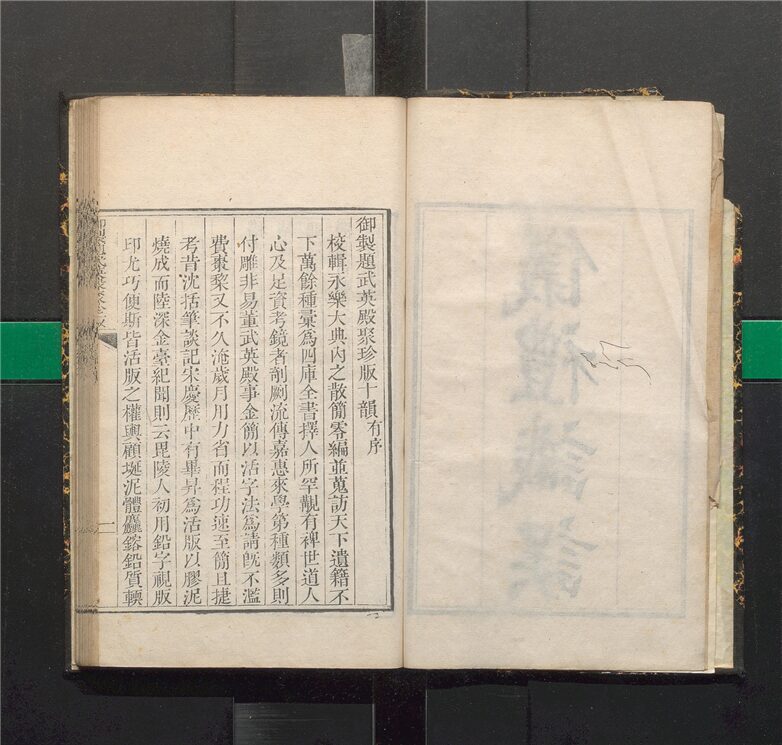 御製題武英殿聚珍版十韻有序
校輯永樂大典內之散簡零編並蒐訪天下遺籍不
下萬餘種彙爲四庫全書擇人所罕覯有裨世道人
心及足資考鏡者剞劂流傳嘉惠來學第種類多則
付雕非易董武英殿事金簡以活字法爲請旣不濫
費棗棃又不久淹歲月用力省而程功速至簡且捷
考昔沈括筆談記宋慶歷中有畢昇爲活版以膠泥
燒成而陸深金臺紀聞則云毘陵人初用鉛字視版
印尤巧便斯皆活版之權輿顧埏泥體麤鎔鉛質輭
二